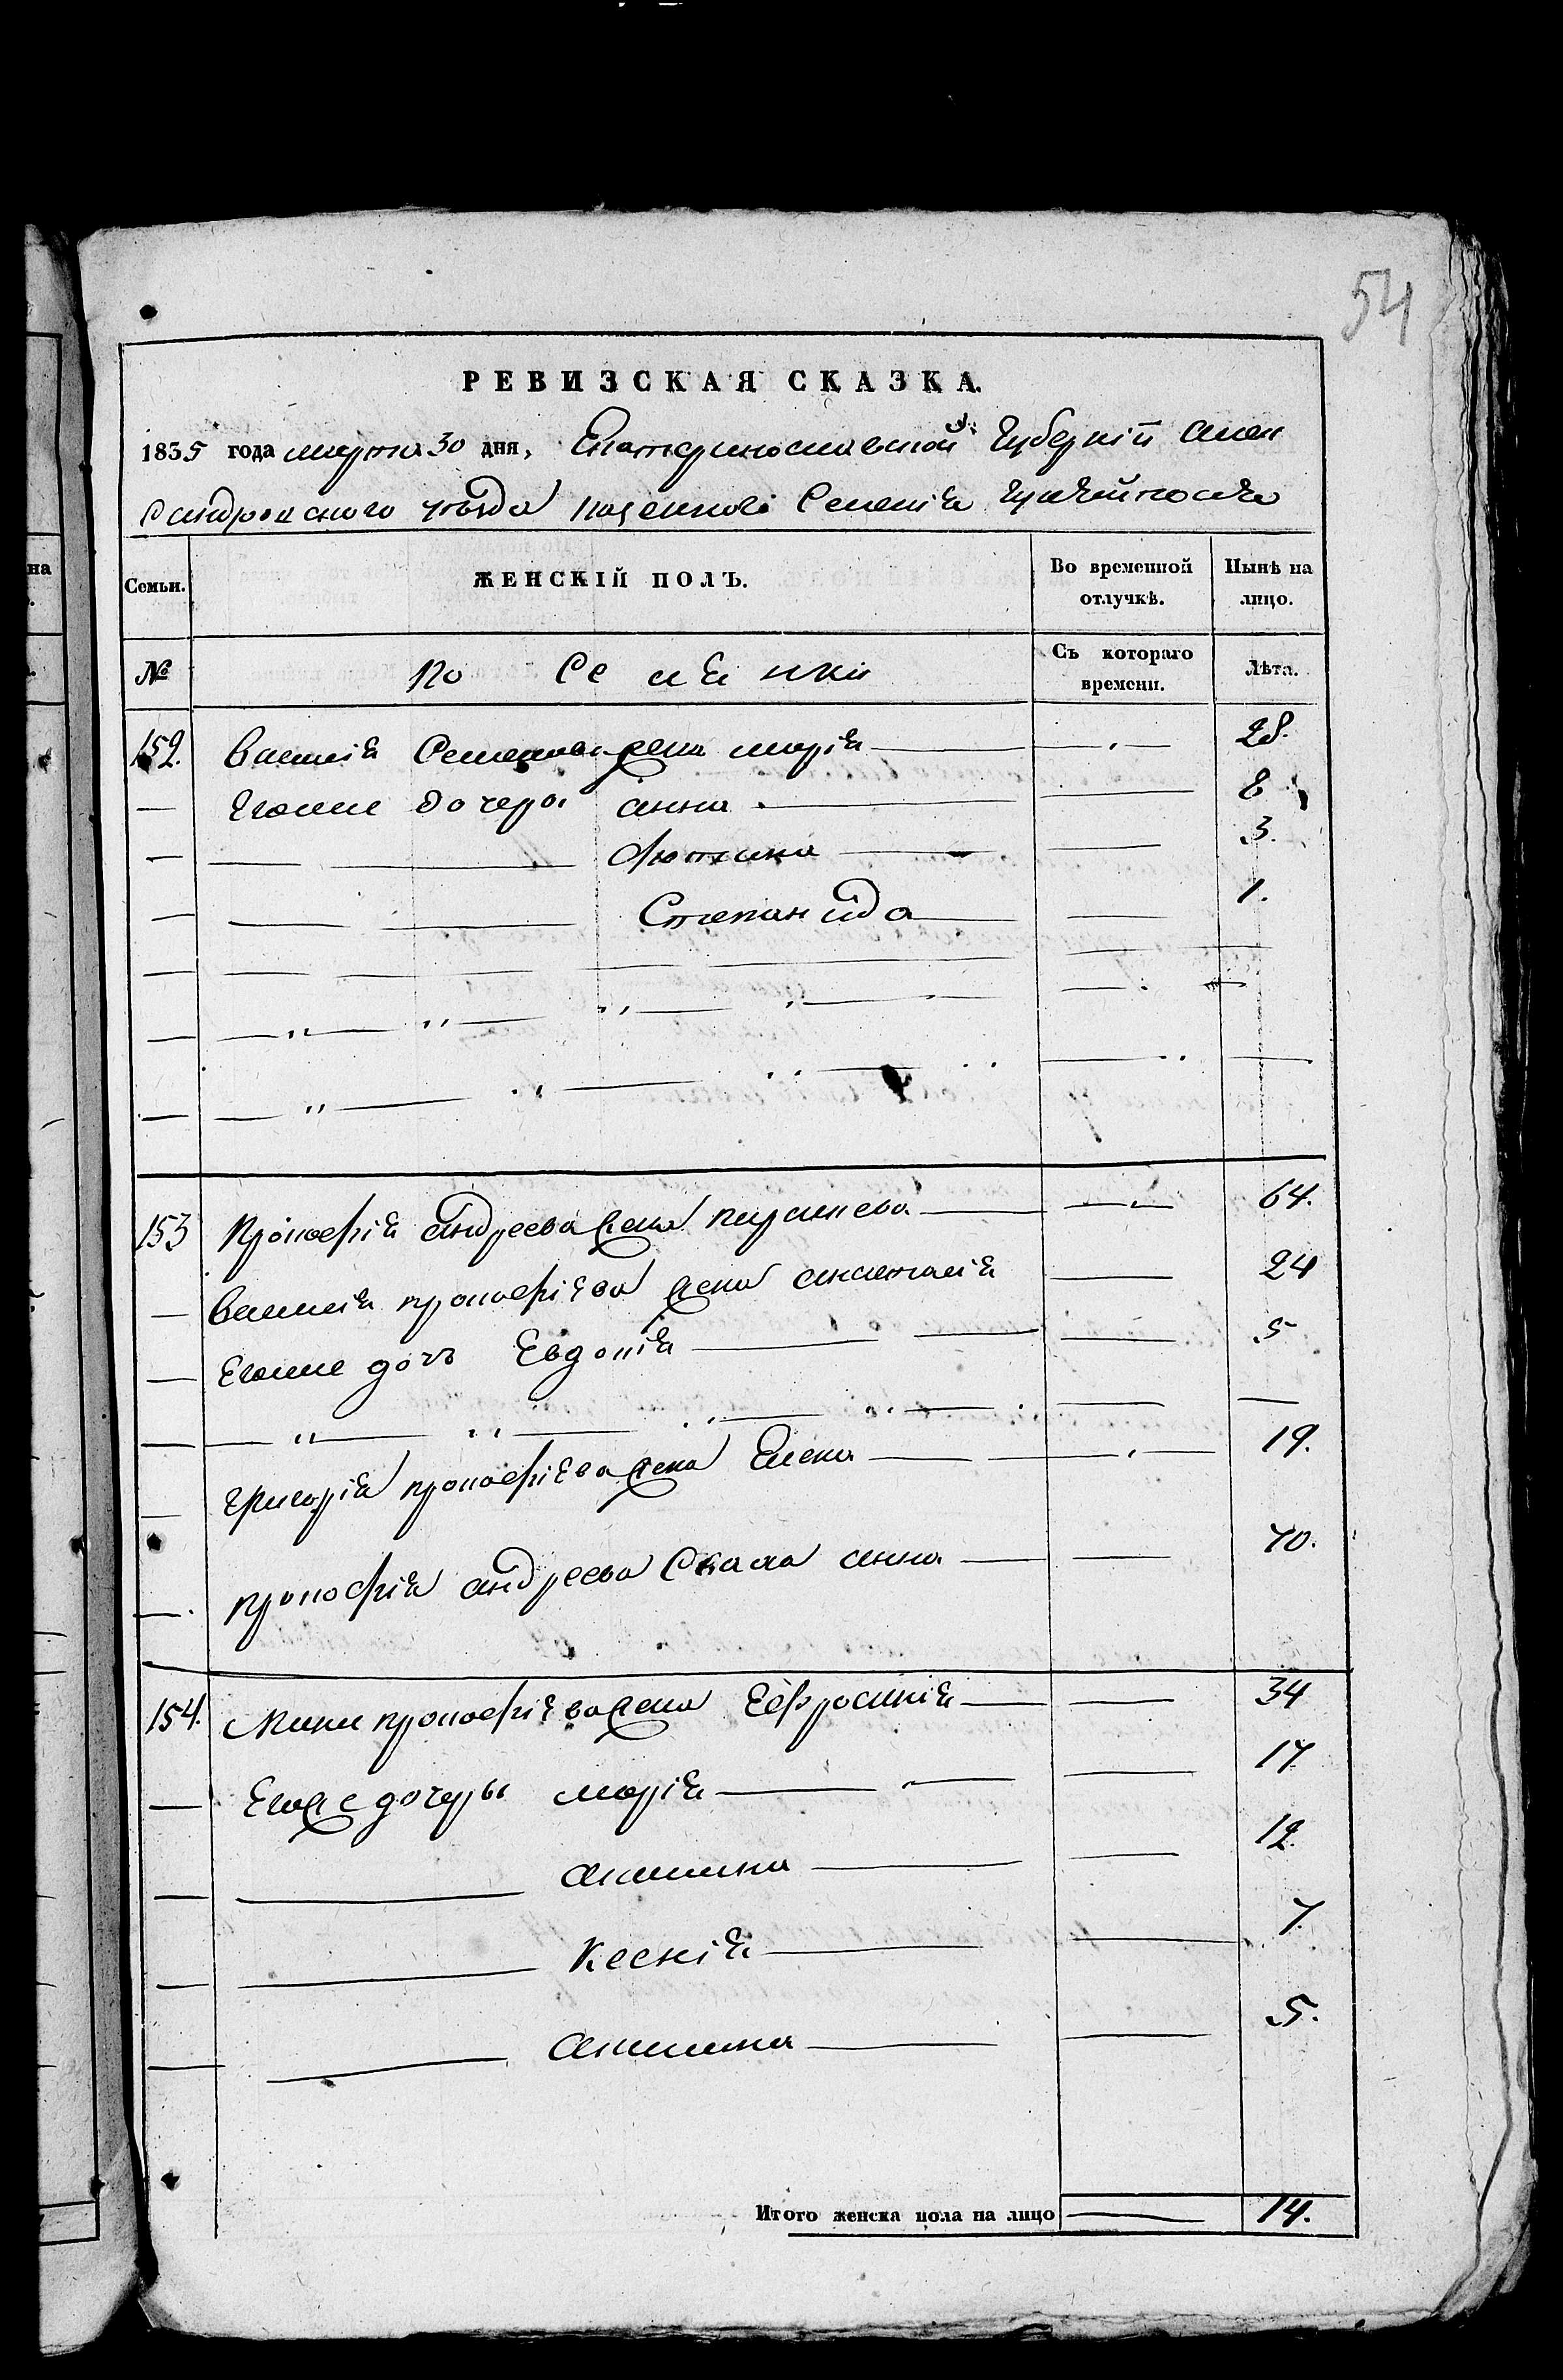 54
РЕВИЗСКАЯ СКАЗКА.
1835 года марта 30 дня, Екатеринославской Губернiи Алек
сандровского уезда казенного Селенiя Гуляйполя
Семьи. ЖЕНСКIЙ ПОЛЪ. Во временной отлучкѣ. Нынѣ на лицо.
№ Съ котораго времени. Лѣта.
152. Василiя Семенова жена марiя 28.
Егоже дочеры анна 8
Фотина 3.
Степанида 1.
153 Прокофiя андреева жена 64.
Василiя прокофiева жена анаталiя 24
Егоже дочь Евдокiя 5
григорiя прокофiева жена Елена 19.
прокофiя андреева анна 70.
154. прокофiева жена Ефросинiя 34
Егоже дочеры марiя 17
акилина 12.
Ксенiя 7.
акилина 5.
Итого женска пола на лицо 14.